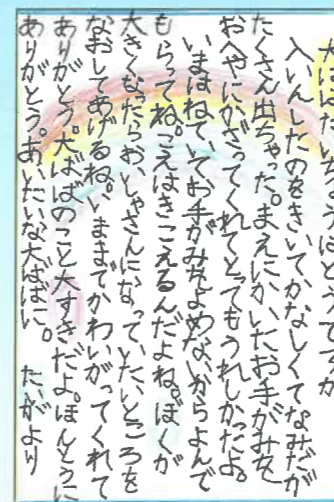 入いんしたのをきいてかなしくてなみだが
たくさん出ちゃった。まえにかいたお手がみを
おへやにかざってくれてとってもうれしかったよ。
いまはねていてお手がみをよめないからよんで
もらってね。こえはきこえるんだよね。ぼくが
大きくなったらおいしゃさんになっていたいところを
なおしてあげるね。いままでかわいがってくれて
ありがとう。大ばばのこと大すきだよ。ほんとうに
ありがとう。あいたいな大ばばに。 たいがより